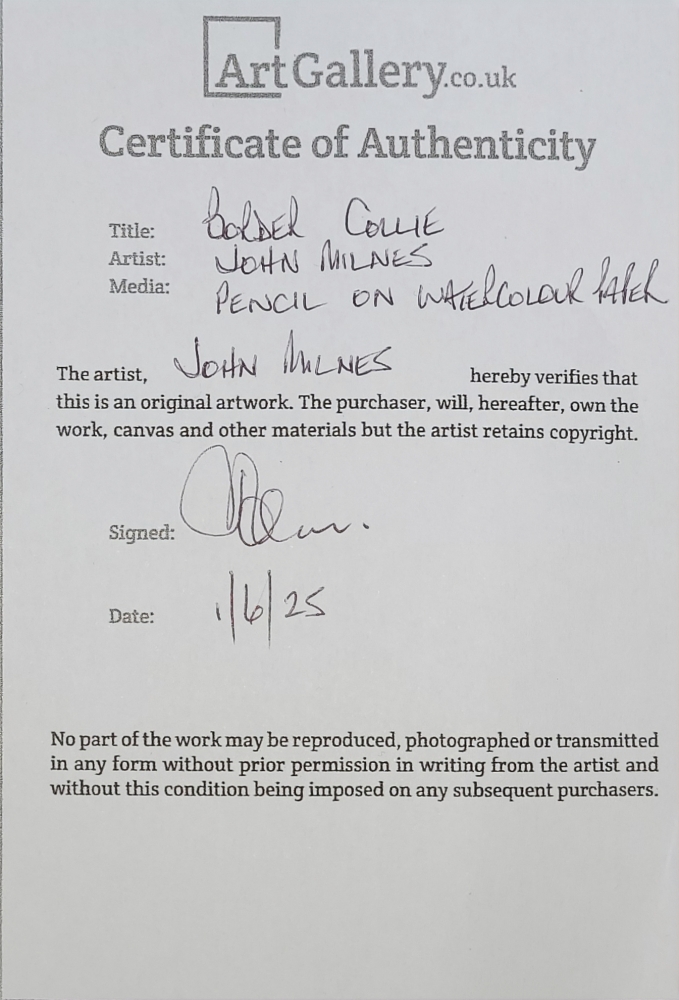 ArtGallery.co.uk
Certificate of Authenticity
Title: BORDER COLLIE
Artist: JOHN MILNES
Media: PENCIL ON WATERCOLOUR PAPER
The artist, JOHN MILNES hereby verifies that
this is an original artwork. The purchaser, will, hereafter, own the
work, canvas and other materials but the artist retains copyright.
Signed:
Date: 1/6/25
No part of the work may be reproduced, photographed or transmitted
in any form without prior permission in writing from the artist and
without this condition being imposed on any subsequent purchasers.